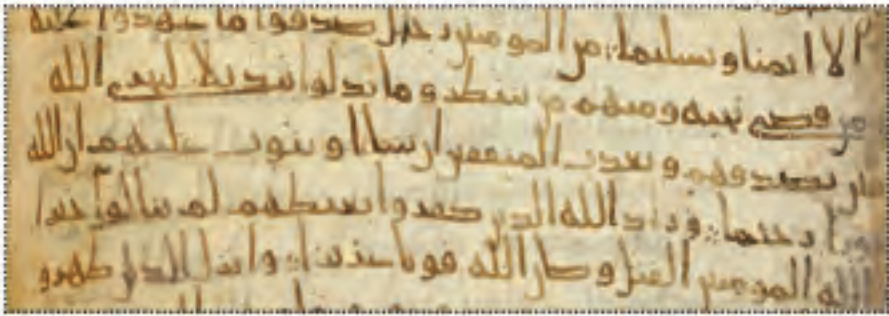 الا ايمنا وتسليما من المومنين رجل صدقوا ما عهدوا عليه
من قضى نحبه ومنهم من ينتظر وما بدلوا تبديلا ليجزي الله
بصدقهم ويعذب المنفقين ان شا او يتوب عليهم ان الله
رحيما ورد الله الذين كفروا بغيظهم لم ينالوا خيرا
الله المومنين القتل وكان الله قويا عزيزا وانزل الذين ظهرو